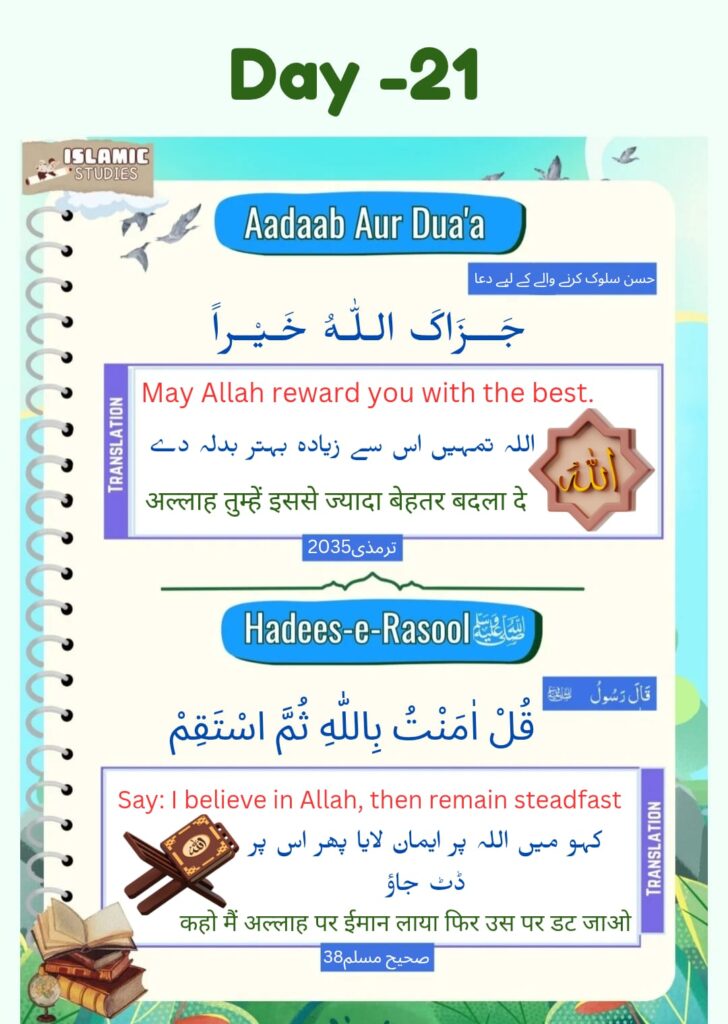 Day -21
ISLAMIC
STUDIES
Aadaab Aur Dua'a
حسن سلوک کرنے والے کے لیے دعا
جَـــزَاكَ الـلّٰـهُ خَـيْـراً
TRANSLATION
May Allah reward you with the best.
اللہ تمہیں اس سے زیادہ بہتر بدلہ دے
अल्लाह तुम्हें इससे ज्यादा बेहतर बदला दे
الله
ترمذی2035
Hadees-e-Rasool ﷺ
قَالَ رَسُولُ ﷺ
قُلْ اٰمَنْتُ بِاللّٰهِ ثُمَّ اسْتَقِمْ
Say: I believe in Allah, then remain steadfast
کہو میں اللہ پر ایمان لایا پھر اس پر
ڈٹ جاؤ
कहो मैं अल्लाह पर ईमान लाया फिर उस पर डट जाओ
TRANSLATION
صحیح مسلم38